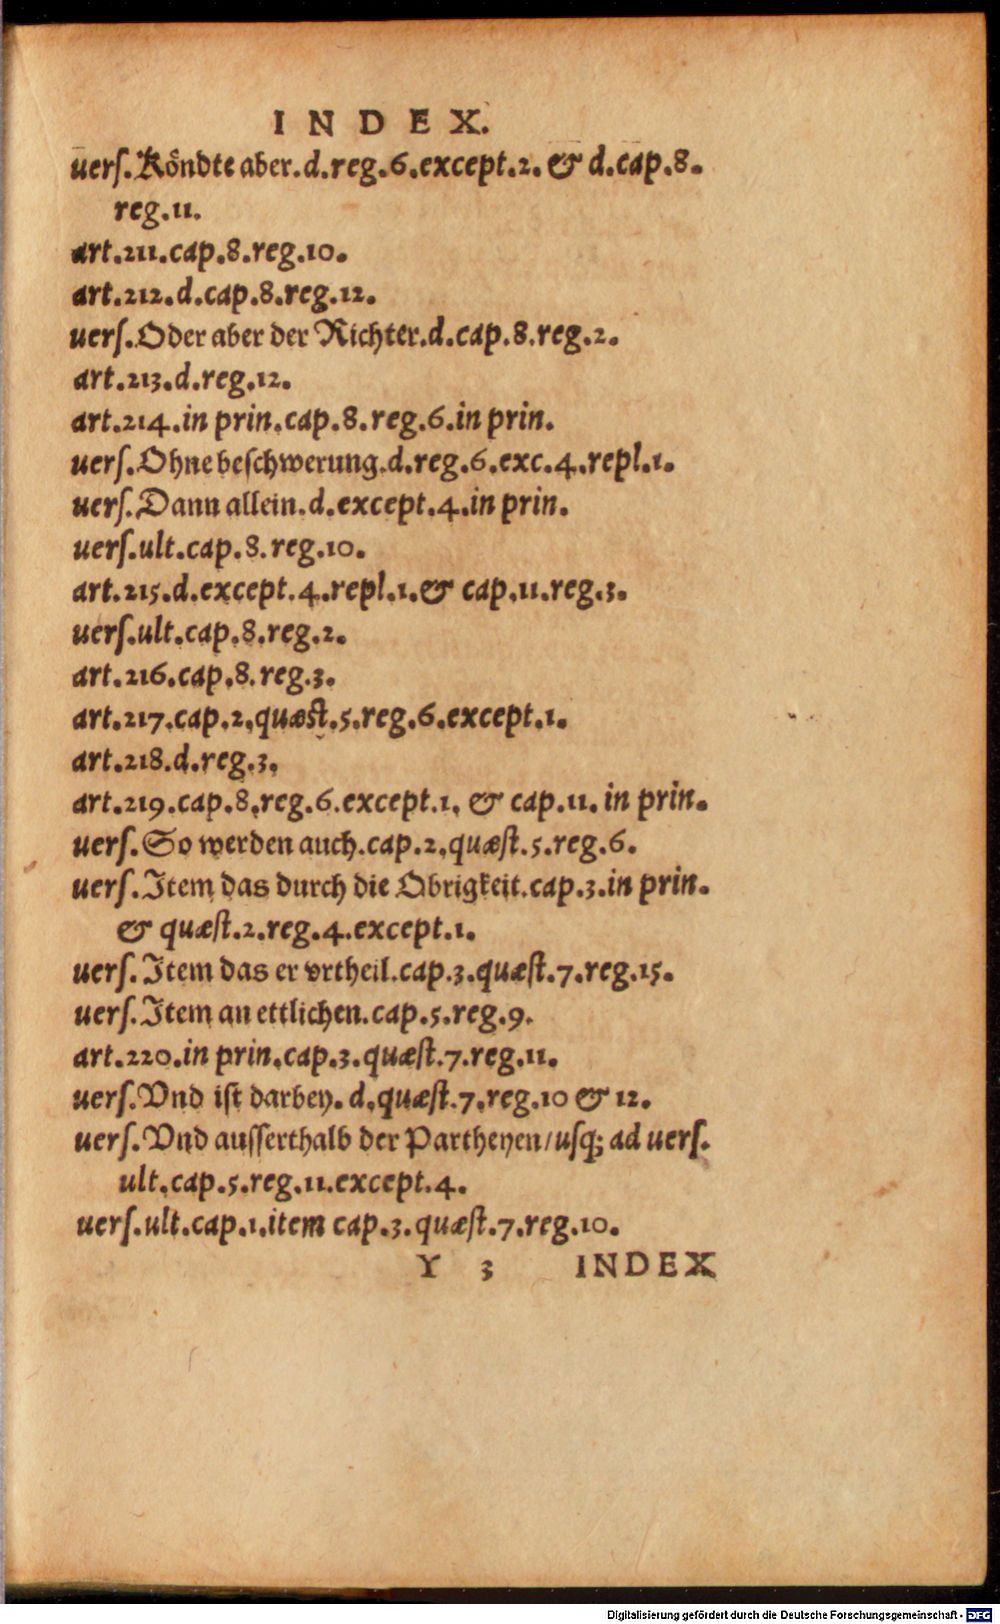 INDEX.
uers. Köndte aber. d. reg. 6. except. 2. & d. cap. 8.
reg. 11.
art. 211. cap. 8. reg. 10.
art. 212. d. cap. 8. reg. 12.
uers. Oder aber der Richter. d. cap. 8. reg. 2.
art. 213. d. reg. 12.
art. 214. in prin. cap. 8. reg. 6. in prin.
uers. Ohne beschwerung. d. reg. 6. exc. 4. repl. 1.
uers. Dann allein. d. except. 4. in prin.
uers. ult. cap. 8. reg. 10.
art. 215. d. except. 4. repl. 1. & cap. 11. reg. 3.
uers. ult. cap. 8. reg. 2.
art. 216. cap. 8. reg. 3.
art. 217. cap. 2. quæst. 5. reg. 6. except. 1.
art. 218. d. reg. 3.
art. 219. cap. 8. reg. 6. except. 1. & cap. 11. in prin.
uers. So werden auch. cap. 2. quæst. 5. reg. 6.
uers. Item das durch die Obrigkeit. cap. 3. in prin.
& quæst. 2. reg. 4. except. 1.
uers. Item das er vrtheil. cap. 3. quæst. 7. reg. 15.
uers. Item an ettlichen. cap. 5. reg. 9.
art. 220. in prin. cap. 3. quæst. 7. reg. 11.
uers. Vnd ist darbey. d. quæst. 7. reg. 10 & 12.
uers. Vnd ausserthalb der Partheyen / usq; ad uers.
ult. cap. 5. reg. 11. except. 4.
uers. ult. cap. 1. item cap. 3. quæst. 7. reg. 10.
Y 3 INDEX
Digitalisierung gefördert durch die Deutsche Forschungsgemeinschaft - DFG